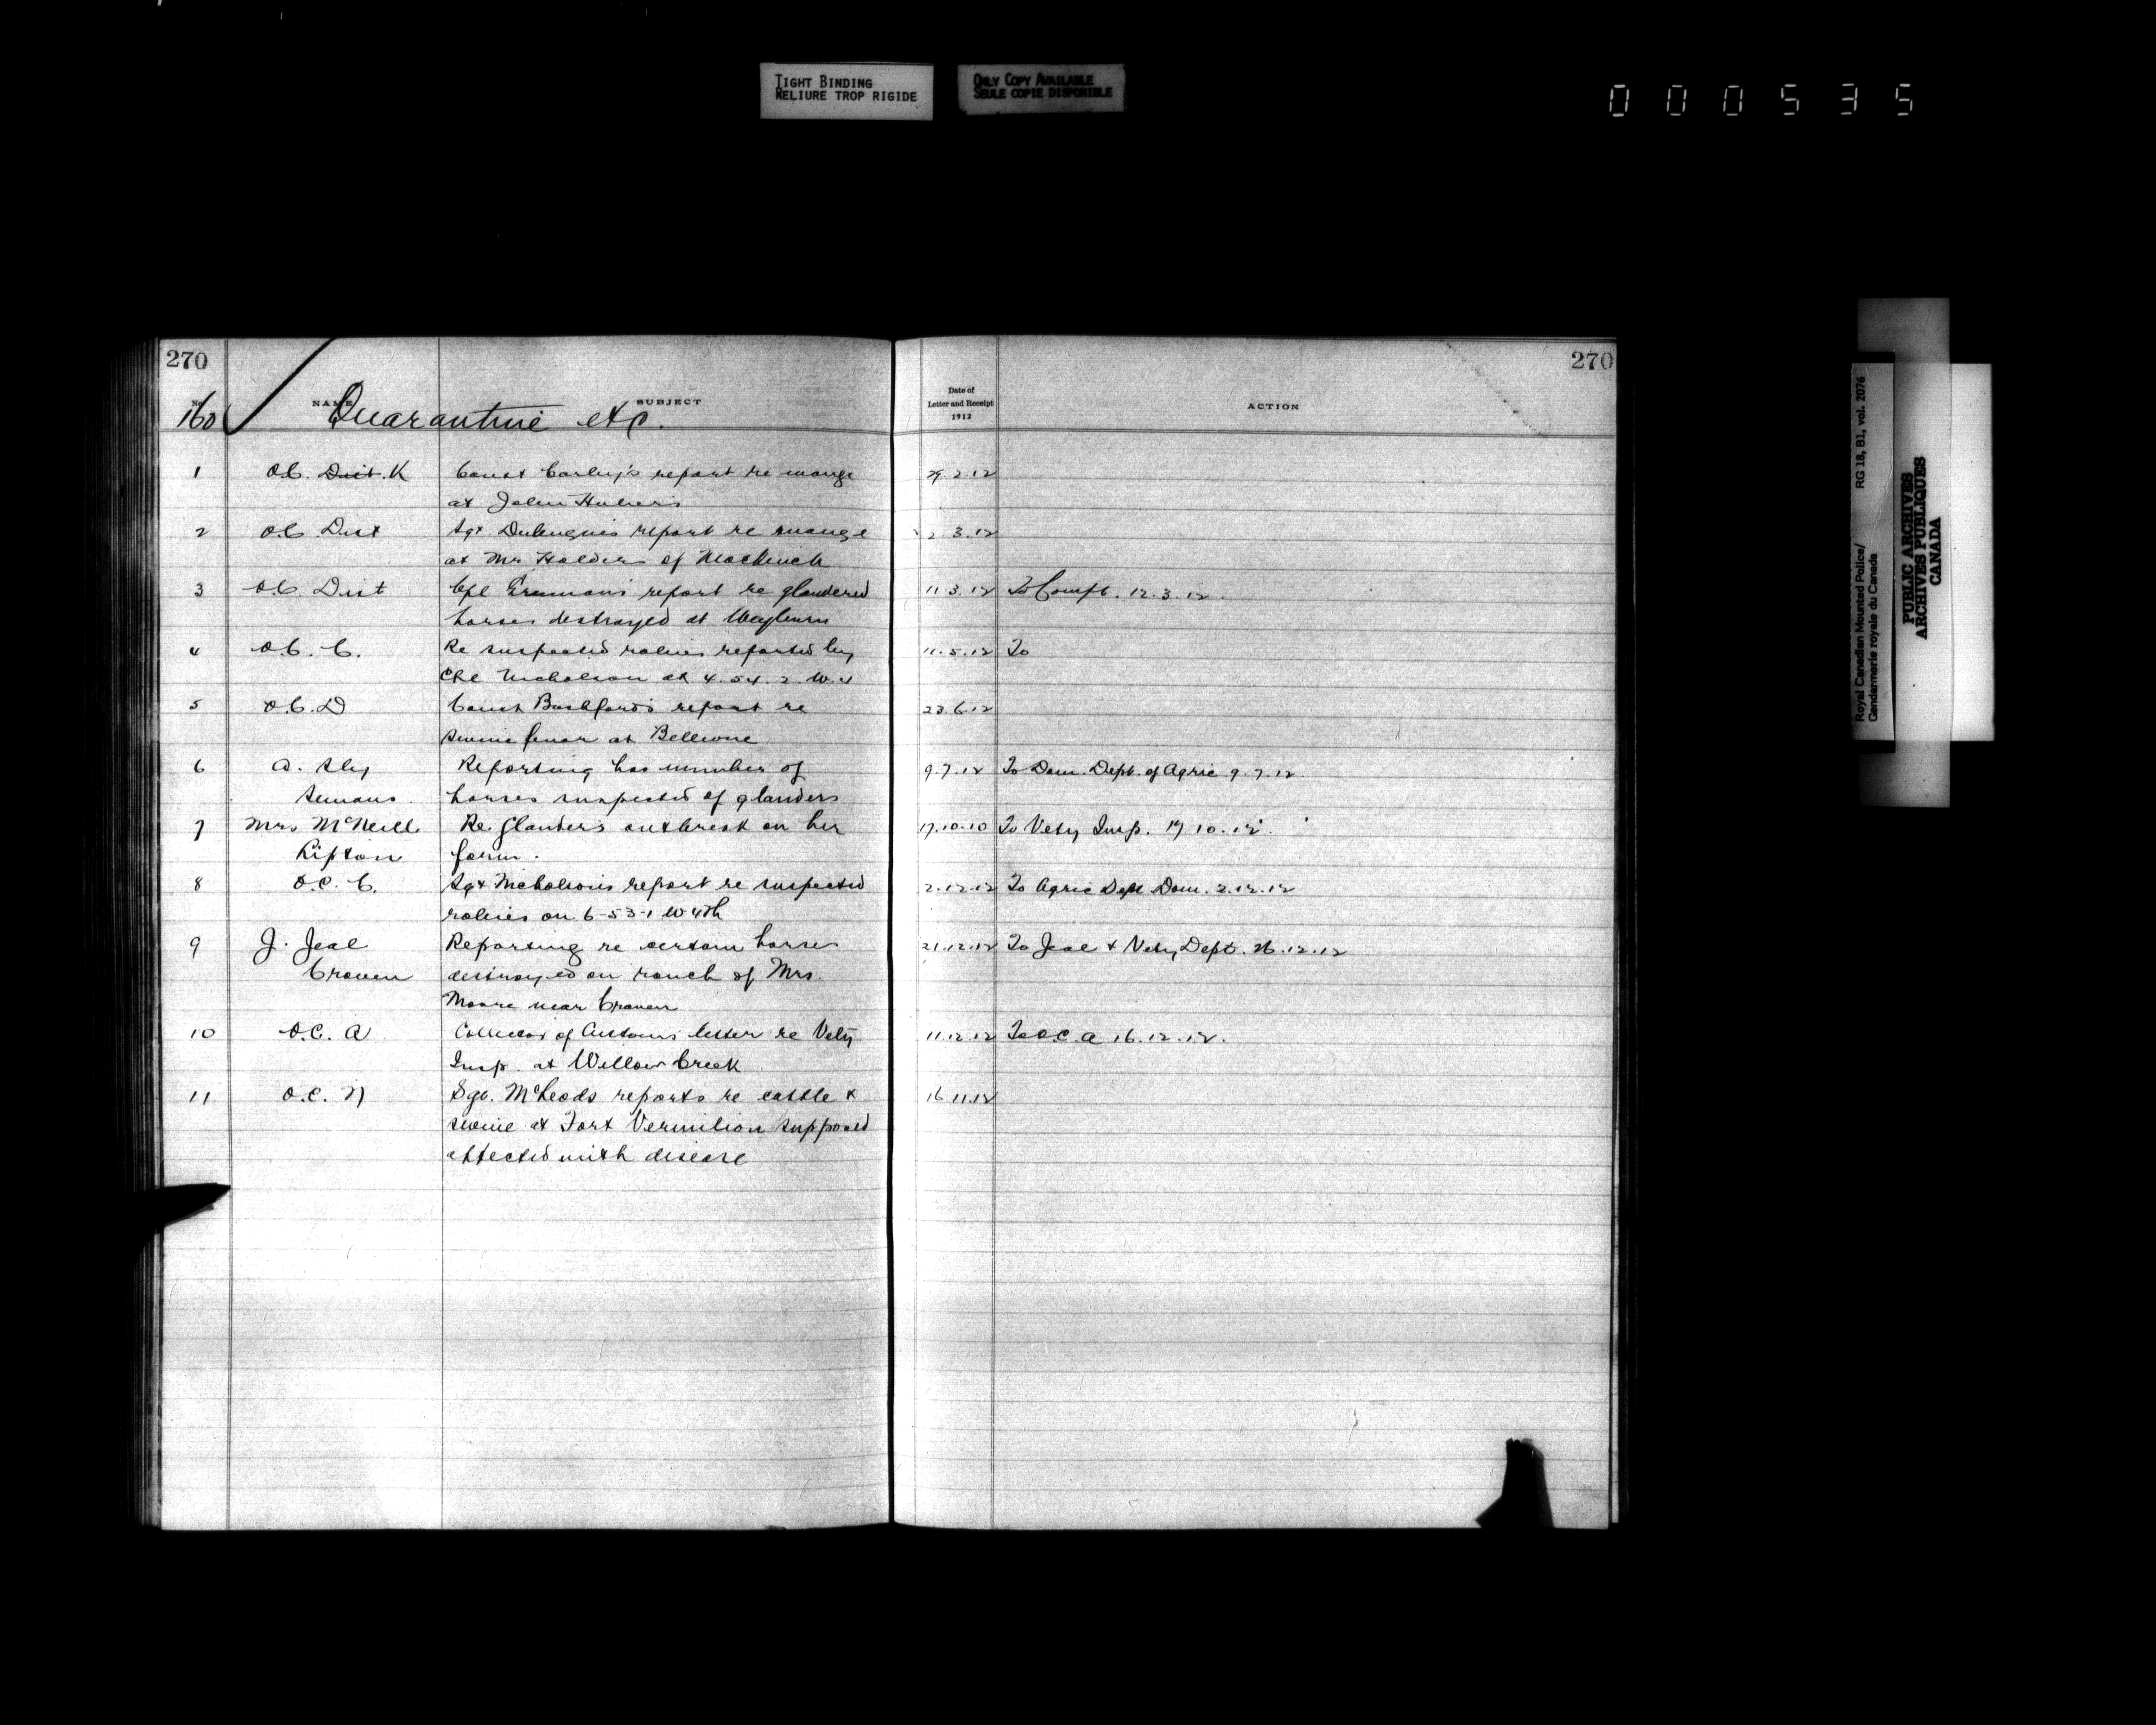 TIGHT BINDING
RELIURE TROP RIGIDE
ONLY COPY AVAILABLE
SEULE COPIE DISPONIBLE
000535
270
270
No
NAME
SUBJECT
Date of
Letter and Receipt
1912
ACTION
160 Quarantine etc.
1 O.C. Dist. K Const Corley's report re mange 29.2.12
at John Huber's
2 O.C. Dist Sgt report re mange 2.3.12
at Mr Holders of
3 O.C. Dist Cpl report re glandered 11.3.12 To Compt. 12.3.12.
horses destroyed at Weyburn
4 O.C. C. Re suspected rabies reported by 11.5.12 To
Cpl Nicholson at 4.54.2.W.4
5 O.C. D Const Bashford's report re 23.6.12
swine fever at Bellevue
6 A. Sly Reporting has number of 9.7.12 To Dom. Dept. of Agric 9.7.12.
Semans. horses suspected of glanders
7 Mrs McNeill Re. Glanders outbreak on her 17.10.10 To Vety Insp. 19 10.12.
Lipton farm.
8 O.C. C. Sgt Nicholson's report re suspected 2.12.12 To Agric Dept Dom. 2.12.12
rabies on 6-53-1 W 4th
9 J. Jeal Reporting re certain horses 21.12.12 To Jeal & Vety Dept. 26.12.12
Craven destroyed on ranch of Mrs.
Moore near Craven
10 O.C. A Collector of Customs letter re Vety 11.12.12 To O.C. A 16.12.12.
Insp. at Willow Creek
11 O.C. N Sgt. McLeods reports re cattle & 16.11.12
swine at Fort Vermilion supposed
affected with disease
Royal Canadian Mounted Police/ RG 18, B1, vol. 2076
Gendarmerie royale du Canada
PUBLIC ARCHIVES
ARCHIVES PUBLIQUES
CANADA